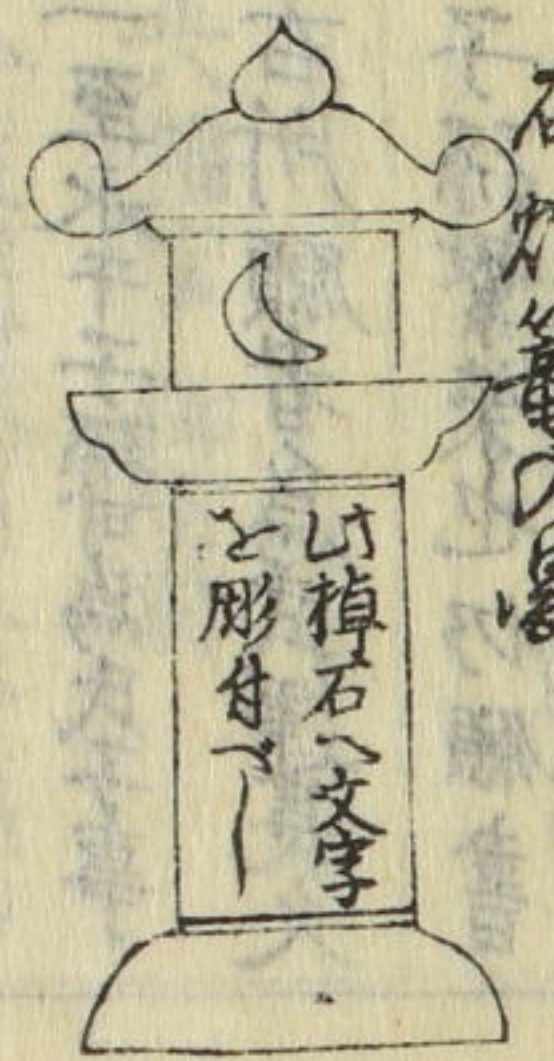 石灯籠の畧
此棹石へ文字
を彫付べし